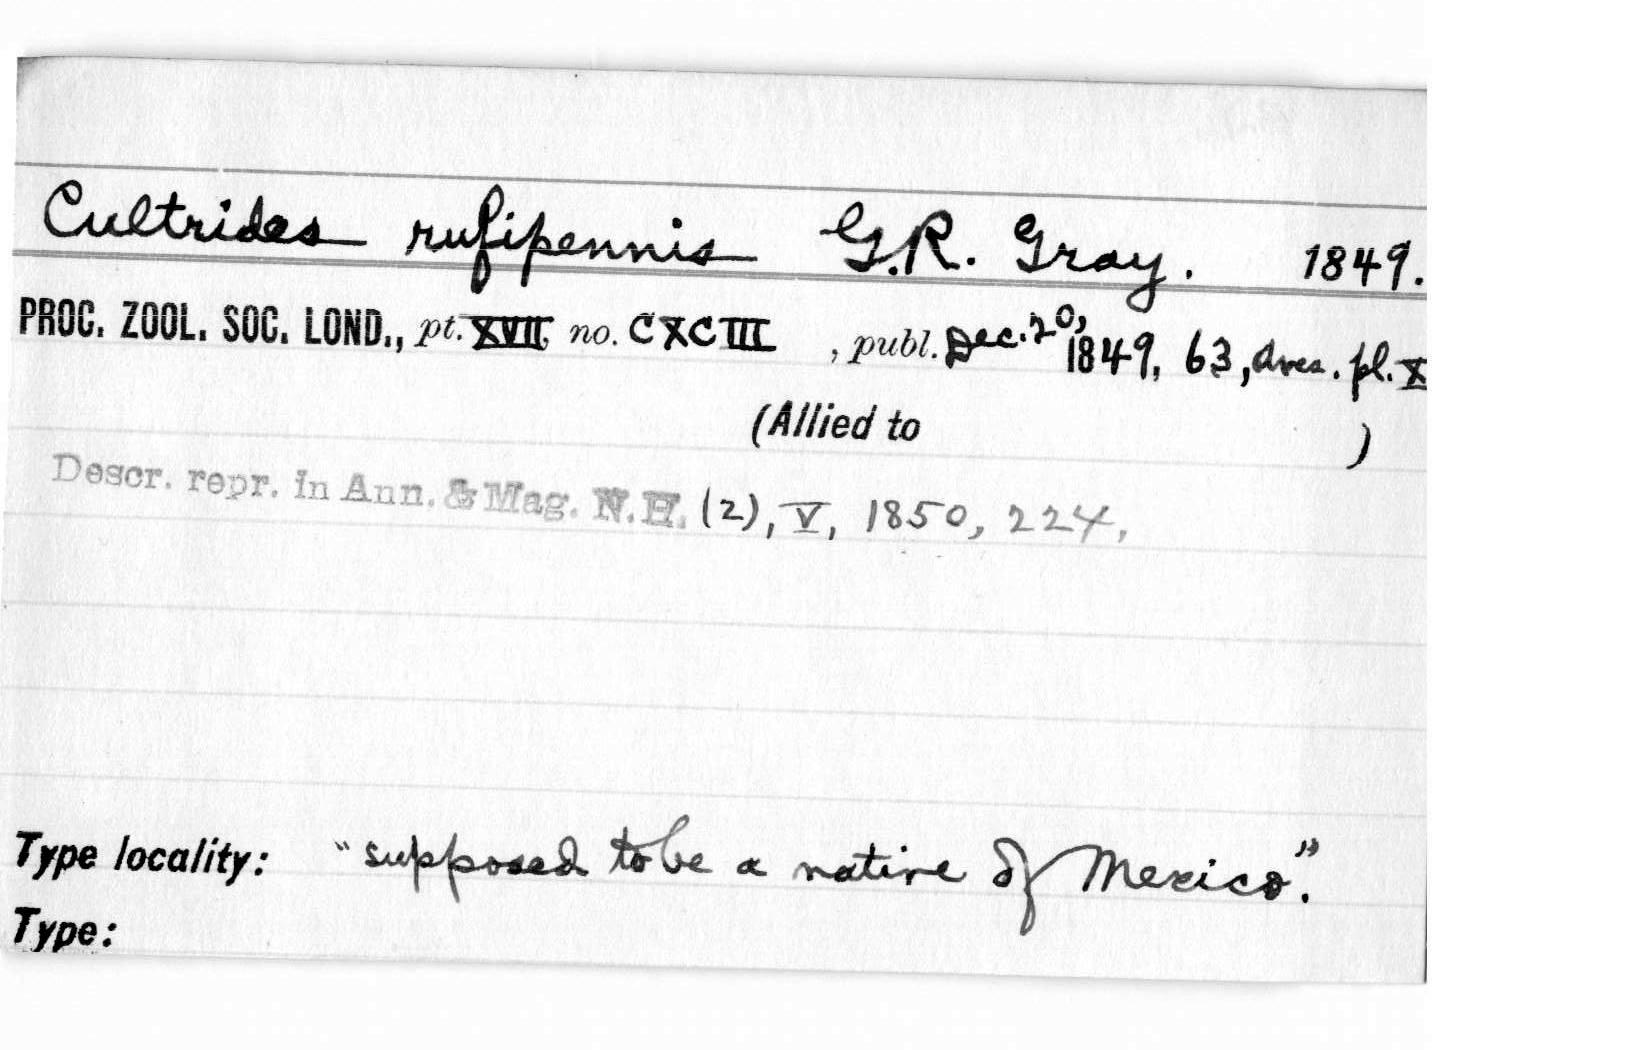 Cultrides rufipennis G.R. Gray. 1849.
PROC. ZOOL. SOC. LOND., pt. XVII, no. CXCIII, publ. Dec. 20, 1849, 63, Aves. pl. X
(Allied to )
Descr. repr. in Ann. & Mag. N.H. (2), V, 1850, 224,
Type locality: "supposed to be a native of Mexico".
Type: